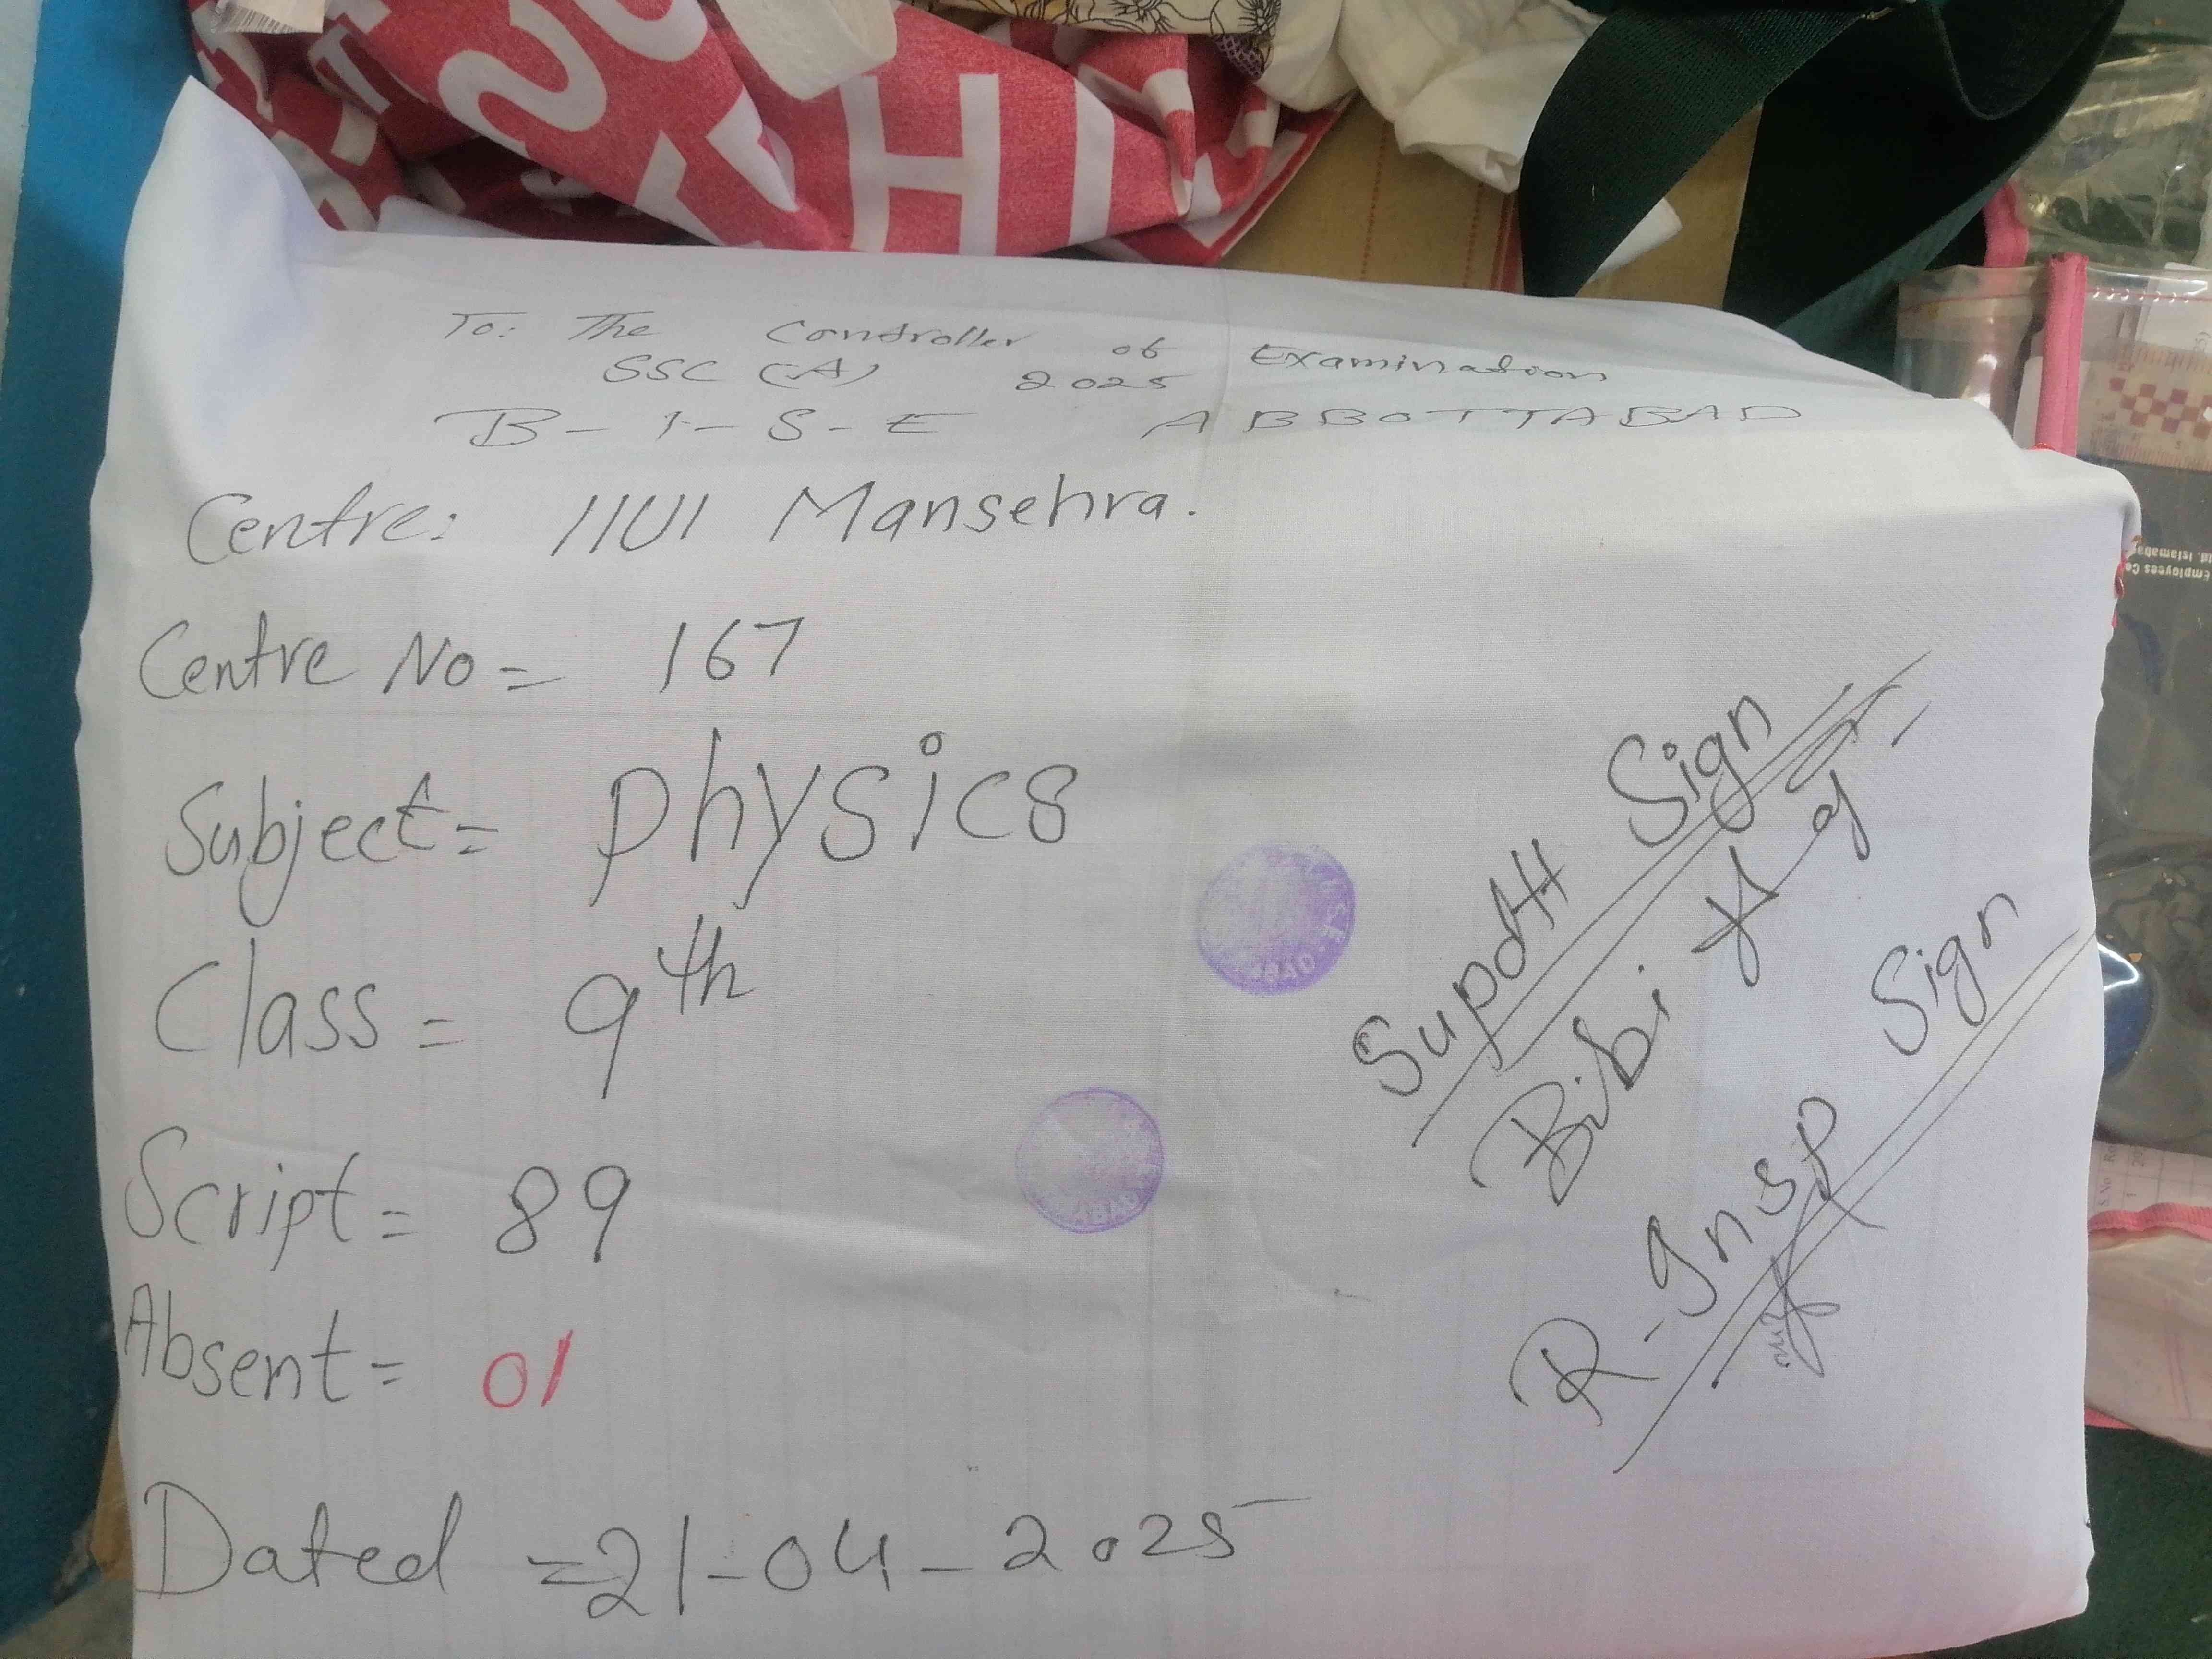 To: The Controller of Examination
SSC (A) 2025
B-I-S-E ABBOTTABAD
Centre: IIUI Mansehra.
Centre No = 167
Subject = Physics
Class = 9th
Script = 89
Absent = 01
Dated = 21-04-2025
Supdtt Sign
Bibi
R-Insp Sign